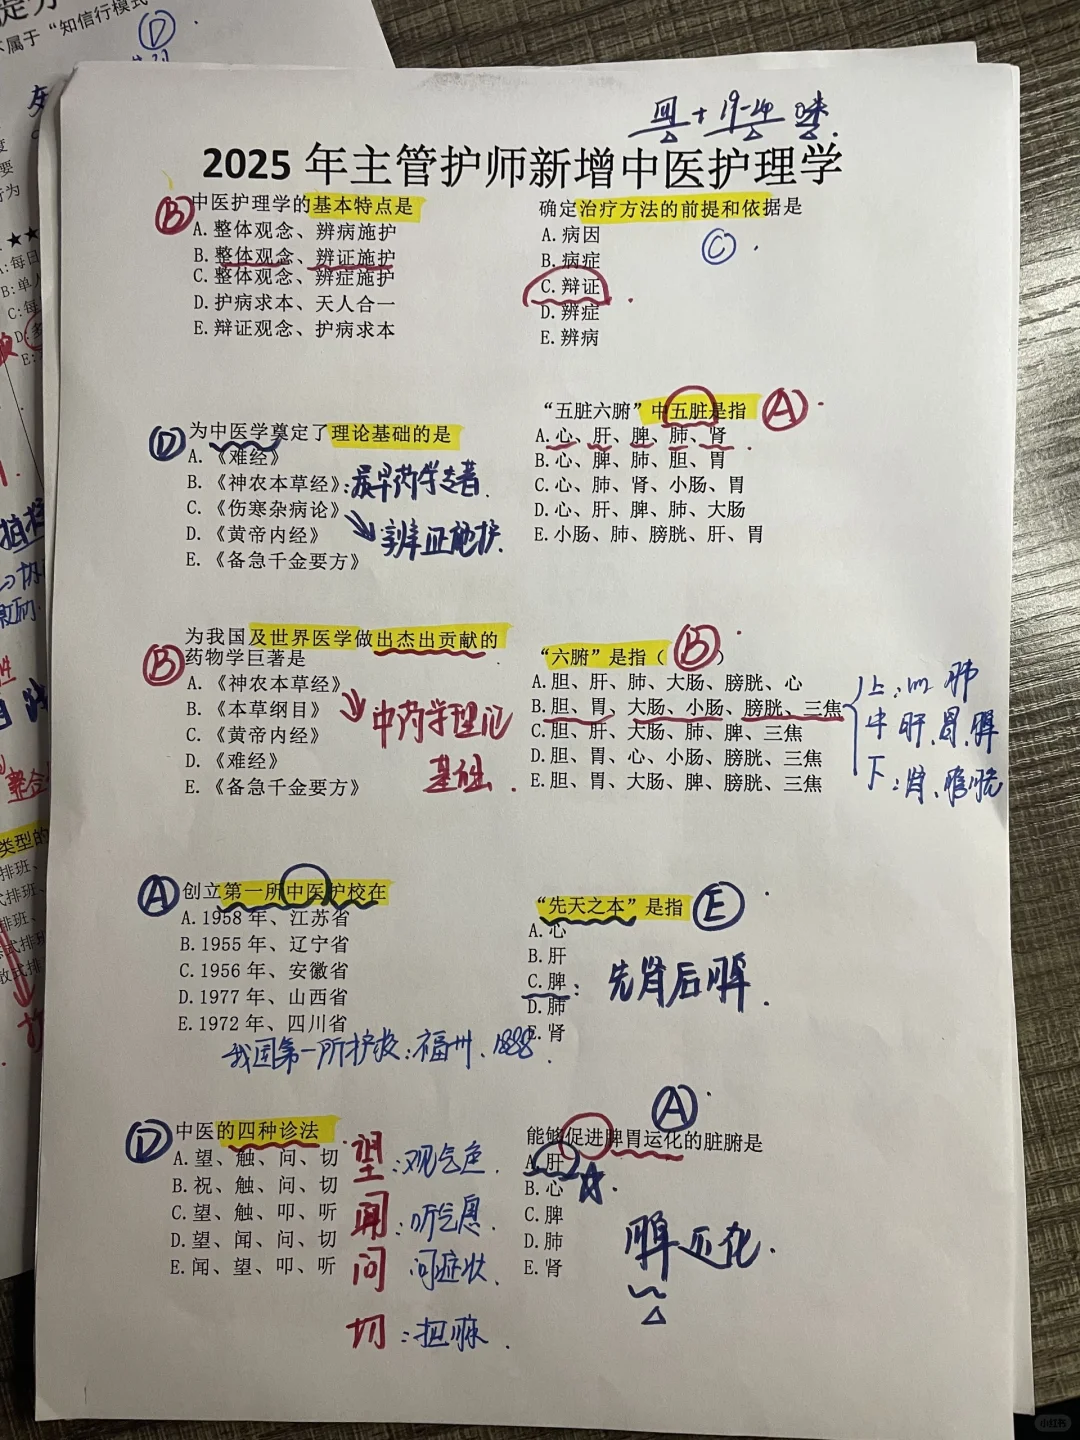 不属于“知信行模式
D
四 + 19-20 味.
2025 年主管护师新增中医护理学
B
中医护理学的基本特点是
A.整体观念、辨病施护
B.整体观念、辨证施护
C.整体观念、辨症施护
D.护病求本、天人合一
E.辩证观念、护病求本
D
为中医学奠定了理论基础的是
A.《难经》
B.《神农本草经》:最早药学专著.
C.《伤寒杂病论》
辨证施护.
D.《黄帝内经》
E.《备急千金要方》
B
为我国及世界医学做出杰出贡献的
药物学巨著是
A.《神农本草经》
中药学理论
基础.
B.《本草纲目》
C.《黄帝内经》
D.《难经》
E.《备急千金要方》
A
创立第一所中医护校在
A.1958 年、江苏省
B.1955 年、辽宁省
C.1956 年、安徽省
D.1977 年、山西省
E.1972 年、四川省
我国第一所护校:福州、1888.
D
中医的四种诊法
A.望、触、问、切
B.祝、触、问、切
C.望、触、叩、听
D.望、闻、问、切
E.闻、望、叩、听
望:观气色.
闻:听气息.
问 问症状.
切:把脉.
确定治疗方法的前提和依据是
C
A.病因
B.病症
C.辩证
D.辨症
E.辨病
“五脏六腑”中五脏是指 A
A.心、肝、脾、肺、肾
B.心、脾、肺、胆、胃
C.心、肺、肾、小肠、胃
D.心、肝、脾、肺、大肠
E.小肠、肺、膀胱、肝、胃
“六腑”是指（B）
A.胆、肝、肺、大肠、膀胱、心
B.胆、胃、大肠、小肠、膀胱、三焦
C.胆、肝、大肠、肺、脾、三焦
D.胆、胃、心、小肠、膀胱、三焦
E.胆、胃、大肠、脾、膀胱、三焦
上:心 肺
中 肝、胃、脾
下:肾、膀胱
“先天之本”是指 E
A.心
B.肝
C.脾:先肾后脾.
D.肺
E.肾
A
能够促进脾胃运化的脏腑是
A.肝
B.心
C.脾
D.肺
E.肾
脾运化.
小红书